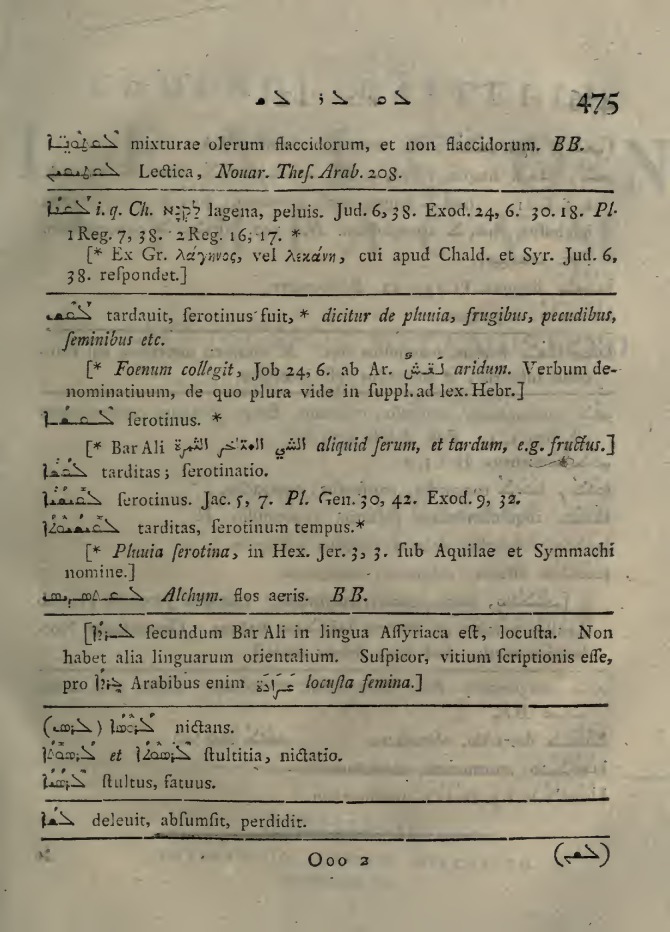 ܠܩ ܠܪ ܠܫ 475
mixturae olerum flaccidorum, et non flaccidorum. BB.
Lectica, Nouar. Theſ. Arab. 208.
ܠܩܢܐ i. q. Ch. לַקְנָא lagena, peluis. Jud. 6, 38. Exod. 24, 6. 30. 18. Pl.
1 Reg. 7, 38. 2 Reg. 16, 17. *
[* Ex Gr. λάγηνος, vel λεκάνη, cui apud Chald. et Syr. Jud. 6,
38. reſpondet.]
ܠܩܫ tardauit, ſerotinus fuit, * dicitur de pluuia, frugibus, pecudibus,
ſeminibus etc.
[* Foenum collegit, Job 24, 6. ab Ar. aridum. Verbum de-
nominatiuum, de quo plura vide in ſuppl. ad lex. Hebr.]
ſerotinus. *
[* Bar Ali الشي المتاخر الثمرة aliquid ſerum, et tardum, e. g. fructus.]
tarditas; ſerotinatio.
ܠܩܝܫܐ ſerotinus. Jac. 5, 7. Pl. Gen. 30, 42. Exod. 9, 32.
ܠܩܝܫܘܬܐ tarditas, ſerotinum tempus. *
[* Pluuia ſerotina, in Hex. Jer. 3, 3. ſub Aquilae et Symmachi
nomine.]
Alchym. flos aeris. BB.
[ſecundum Bar Ali in lingua Aſſyriaca eſt, locuſta. Non
habet alia linguarum orientalium. Suſpicor, vitium ſcriptionis eſſe,
pro Arabibus enim locuſta femina.]
nictans.
et ſtultitia, nictatio.
ſtultus, fatuus.
deleuit, abſumſit, perdidit.
Ooo 2